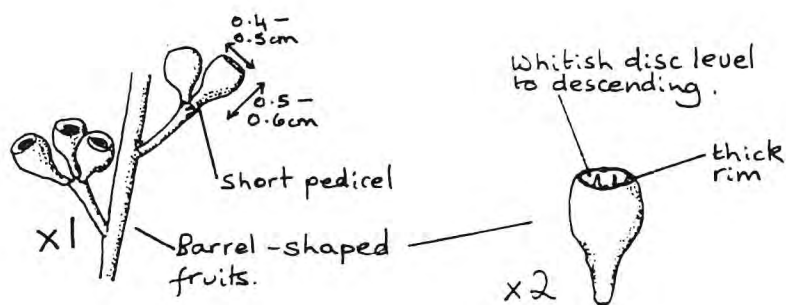 0.4 –
0.5cm
0.5 –
0.6cm
Short pedicel
x1
Barrel-shaped
fruits.
Whitish disc level
to descending.
thick
rim
x2